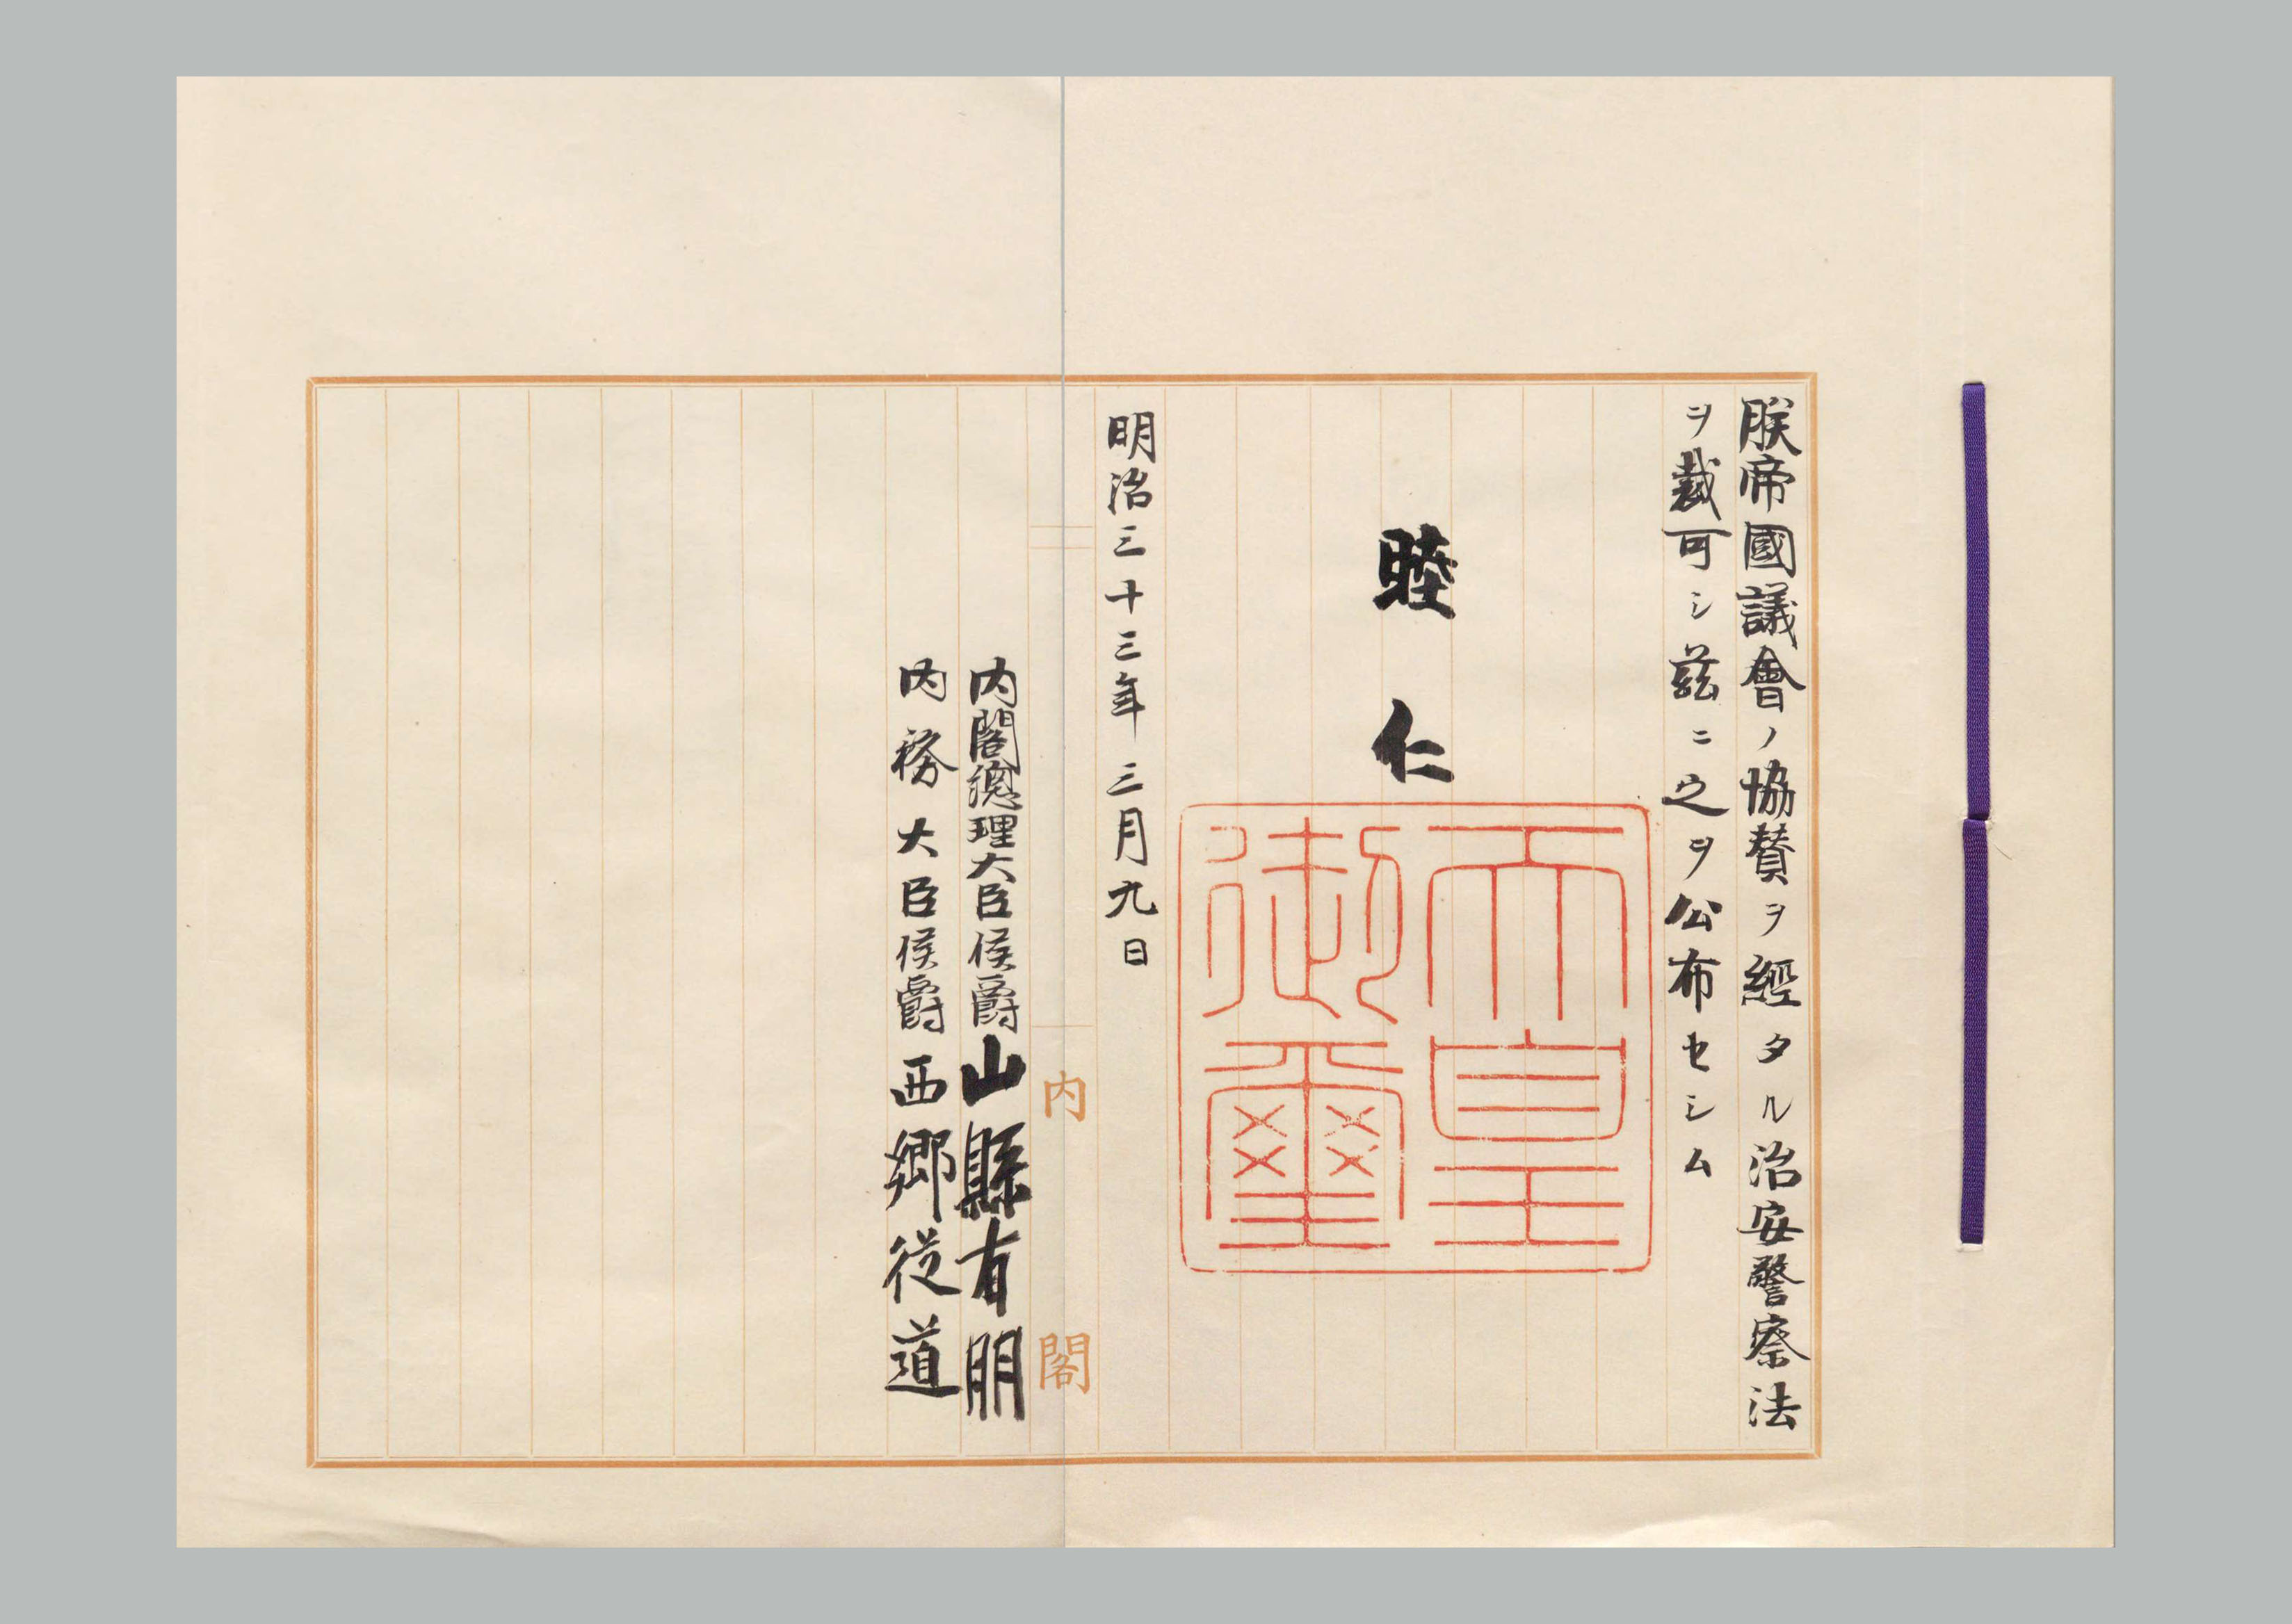 朕帝國議會ノ協賛ヲ經タル治安警察法
ヲ裁可シ茲ニ之ヲ公布セシム
睦仁
天皇
御璽
明治三十三年三月九日
内閣
内閣總理大臣侯爵山縣有朋
内務大臣侯爵西郷従道